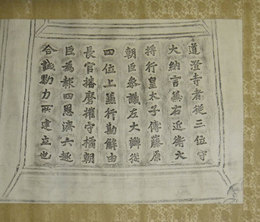 道澄寺者從三位守
大納言兼右近衛大
將行皇太子傅藤原
朝臣參議左大辨從
四位上兼行勘解由
長官播磨權守橘朝
臣為報四恩濟六趣
合誠勠力所建立也